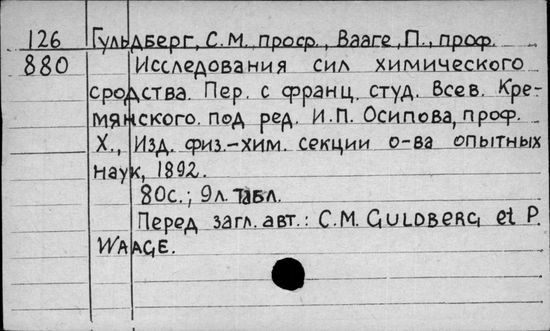 126 Гульдберг, С.М. проф., Вааге, П., проф.
880 Исследования сил химического
сродства. Пер. с франц. студ. Всев. Кре-
мянского. под ред. И.П. Осипова, проф.
Х., Изд. физ.-хим. секции о-ва опытных
наук, 1892.
80с.; 9л. табл.
Перед загл. авт.: C.M. GULDBERG et P.
WAAGE.